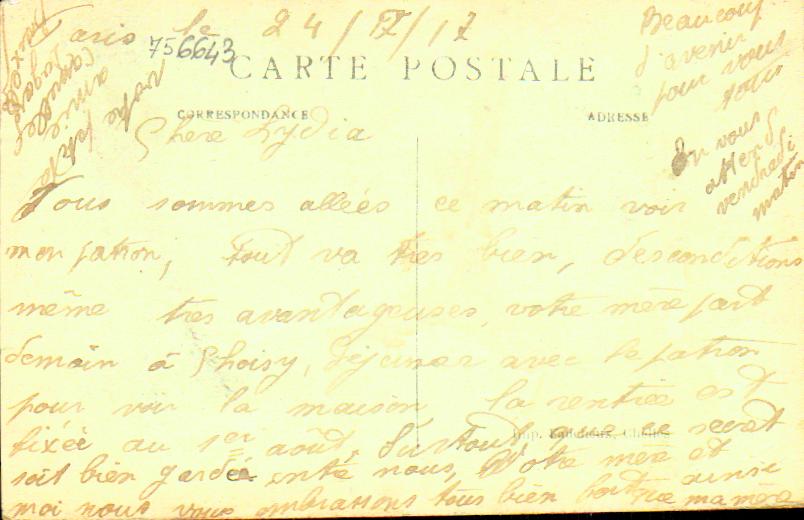 Paris le 24/IV/17
756643
CARTE POSTALE
CORRESPONDANCE
ADRESSE
Chere Lydia
Nous sommes allées ce matin voir
mon patron, tout va tres bien, des conditions
même tres avantageuses, votre mère part
demain à Choisy, déjeuner avec le patron
pour voir la maison la rentrée est
fixée au 1er août, Surtout que ce secret
soit bien gardée entre nous, Votre mère et
moi nous vous embrassons tous bien fort ainsi que ma mère
Beaucoup
d'avenir
pour vous
tous
On vous
attend
vendredi
matin
votre
amie
Imp. Chelles